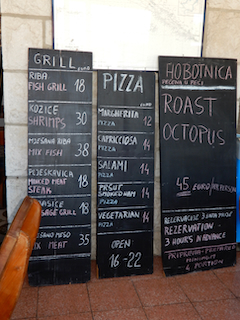 GRILL
EURO
RIBA
FISH GRILL 18
KOZICE
SHRIMPS 30
MJEŠANA RIBA
MIX FISH 38
PLJESKAVICA
MINCED MEAT 18
STEAK
18
MJEŠANO MESO
MIX MEAT 35
PIZZA
EURO
MARGHERITA
PIZZA 12
CAPRICCIOSA
PIZZA 14
SALAMI
PIZZA 14
PRŠUT
SMOKED HAM 14
PIZZA
VEGETARIAN
PIZZA 14
OPEN
16-22
HOBOTNICA
PEČENA U PEĆI
ROAST
OCTOPUS
45 EURO/PER PERSON
RESERVACIJE 3 SATA PRIJE
RESERVATION -
3 HOURS IN ADVANCE
PRIPREMA - PREPARED
MINIMUM
4 PORTION